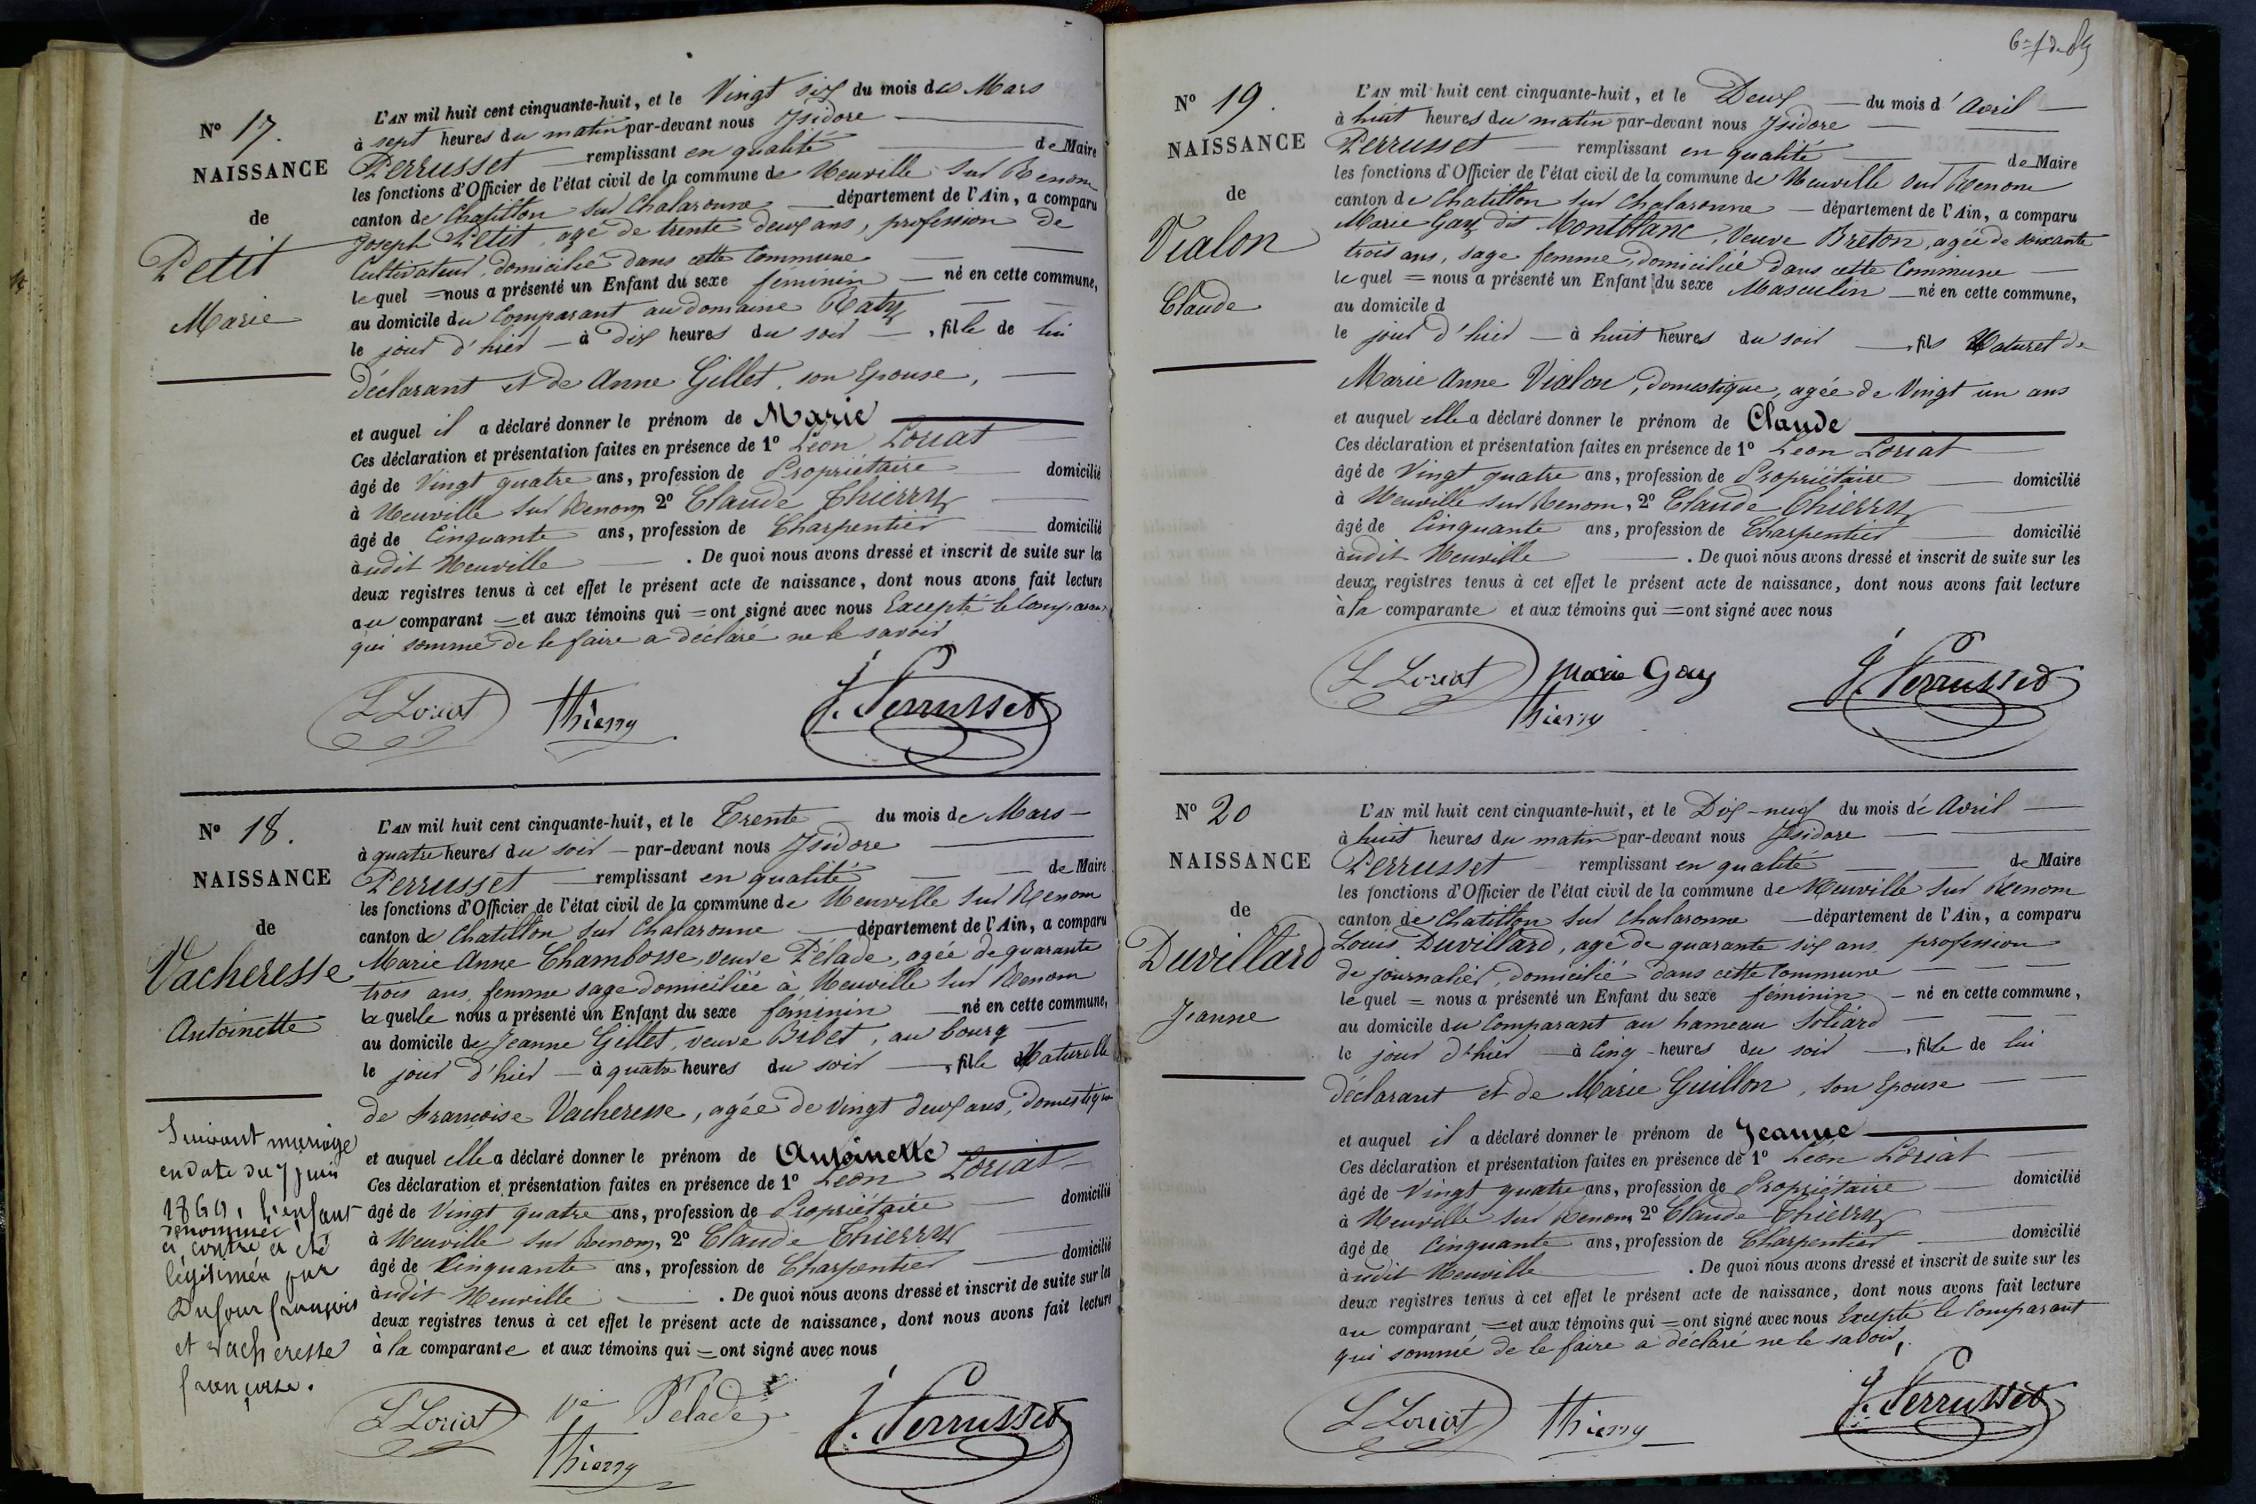 N° 17.
NAISSANCE
de
Petit
Marie
L'AN mil huit cent cinquante-huit, et le Vingt six du mois des Mars
à sept heures du matin par-devant nous Isidore
Perrusset remplissant en qualité de Maire
les fonctions d'Officier de l'état civil de la commune de Neuville sur Renom
canton de Chatillon sur Chalaronne département de l'Ain, a comparu
Joseph Petit, agé de trente deux ans, profession de
Cultivateur, domicilié dans cette Commune
lequel = nous a présenté un Enfant du sexe féminin né en cette commune,
au domicile du Comparant au domaine Raty
le jour d'hier à Dix heures du soir, fille de lui
déclarant et de Anne Gillet, son Epouse,
et auquel il a déclaré donner le prénom de Marie
Ces déclaration et présentation faites en présence de 1° Léon Loriat
âgé de Vingt quatre ans, profession de Propriétaire domicilié
à Neuville sur Renom, 2° Claude Thierry
âgé de Cinquante ans, profession de Charpentier domicilié
audit Neuville. De quoi nous avons dressé et inscrit de suite sur les
deux registres tenus à cet effet le présent acte de naissance, dont nous avons fait lecture
au comparant = et aux témoins qui = ont signé avec nous Excepté le Comparant
qui sommé de le faire a déclaré ne le savoir
L Loriat Thierry J. Perrusset
N° 18.
NAISSANCE
de
Vacheresse
Antoinette
Suivant mariage
en date du 7 juin
l'enfant
dénommée
ci contre a été
légitimée par
Dufour françois
et Vacheresse
françoise.
L'AN mil huit cent cinquante-huit, et le Trente du mois de Mars
à quatre heures du soir par-devant nous Isidore
Perrusset remplissant en qualité de Maire
les fonctions d'Officier de l'état civil de la commune de Neuville sur Renom
canton de Chatillon sur Chalaronne département de l'Ain, a comparu
Marie Anne Chambosse, veuve Pélade, agée de quarante
trois ans, femme sage domiciliée à Neuville sur Renom
laquelle nous a présenté un Enfant du sexe féminin né en cette commune,
au domicile de Jeanne Gillet, veuve Bibet, au bourg
le jour d'hier à quatre heures du soir, fille Naturelle
de Françoise Vacheresse, agée de vingt deux ans, domestique
et auquel elle a déclaré donner le prénom de Antoinette
Ces déclaration et présentation faites en présence de 1° Léon Loriat
âgé de Vingt quatre ans, profession de Propriétaire domicilié
à Neuville sur Renom, 2° Claude Thierry
âgé de Cinquante ans, profession de Charpentier domicilié
audit Neuville. De quoi nous avons dressé et inscrit de suite sur les
deux registres tenus à cet effet le présent acte de naissance, dont nous avons fait lecture
à la comparante et aux témoins qui = ont signé avec nous
L Loriat Ve Pelade J. Perrusset
Thierry
N° 19.
NAISSANCE
de
Vialon
Claude
L'AN mil huit cent cinquante-huit, et le Deux du mois d'Avril
à huit heures du matin par-devant nous Isidore
Perrusset remplissant en qualité de Maire
les fonctions d'Officier de l'état civil de la commune de Neuville sur Renom
canton de Chatillon sur Chalaronne département de l'Ain, a comparu
Marie Gay dit Montblanc, Veuve Breton, agée de soixante
trois ans, sage femme, domiciliée dans cette Commune
lequel = nous a présenté un Enfant du sexe Masculin né en cette commune,
au domicile d
le jour d'hier à huit heures du soir, fils Naturel de
Marie Anne Vialon, domestique, agée de Vingt un ans
et auquel elle a déclaré donner le prénom de Claude
Ces déclaration et présentation faites en présence de 1° Leon Loriat
âgé de Vingt quatre ans, profession de Propriétaire domicilié
à Neuville sur Renom, 2° Claude Thierry
âgé de Cinquante ans, profession de Charpentier domicilié
audit Neuville. De quoi nous avons dressé et inscrit de suite sur les
deux registres tenus à cet effet le présent acte de naissance, dont nous avons fait lecture
à la comparante et aux témoins qui = ont signé avec nous
L Loriat Marie Gay J. Perrusset
Thierry
N° 20
NAISSANCE
de
Duvillard
Jeanne
L'AN mil huit cent cinquante-huit, et le Dix-neuf du mois de Avril
à huit heures du matin par-devant nous Isidore
Perrusset remplissant en qualité de Maire
les fonctions d'Officier de l'état civil de la commune de Neuville sur Renom
canton de Chatillon sur Chalaronne département de l'Ain, a comparu
Louis Duvillard, agé de quarante six ans, profession
de journalier, domicilié dans cette Commune
lequel = nous a présenté un Enfant du sexe féminin né en cette commune,
au domicile du Comparant au hameau Soliard
le jour d'hier à cinq heures du soir, fille de lui
déclarant et de Marie Guillon, son Epouse
et auquel il a déclaré donner le prénom de Jeanne
Ces déclaration et présentation faites en présence de 1° Léon Loriat
âgé de Vingt quatre ans, profession de Propriétaire domicilié
à Neuville sur Renom, 2° Claude Thierry
âgé de Cinquante ans, profession de Charpentier domicilié
audit Neuville. De quoi nous avons dressé et inscrit de suite sur les
deux registres tenus à cet effet le présent acte de naissance, dont nous avons fait lecture
au comparant = et aux témoins qui = ont signé avec nous Excepté le Comparant
qui sommé de le faire a déclaré ne le savoir.
L Loriat Thierry J. Perrusset